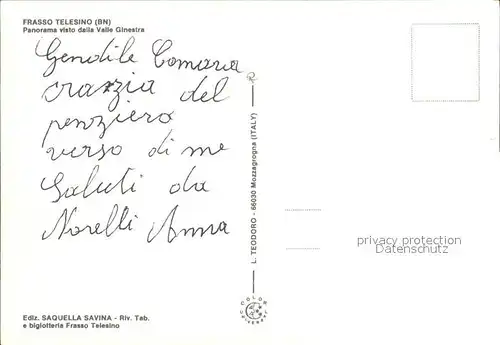 FRASSO TELESINO (BN)
Panorama visto dalla Valle Ginestra
Gendile Comara
Crazzia del
penziero
verso di me
Saluti da
Norelli Anna
L. TEODORO - 66030 Mozzagrogna (ITALY)
privacy protection
Datenschutz
COLOR
UNIVERSAT
Ediz. SAQUELLA SAVINA - Riv. Tab.
e bigiotteria Frasso Telesino